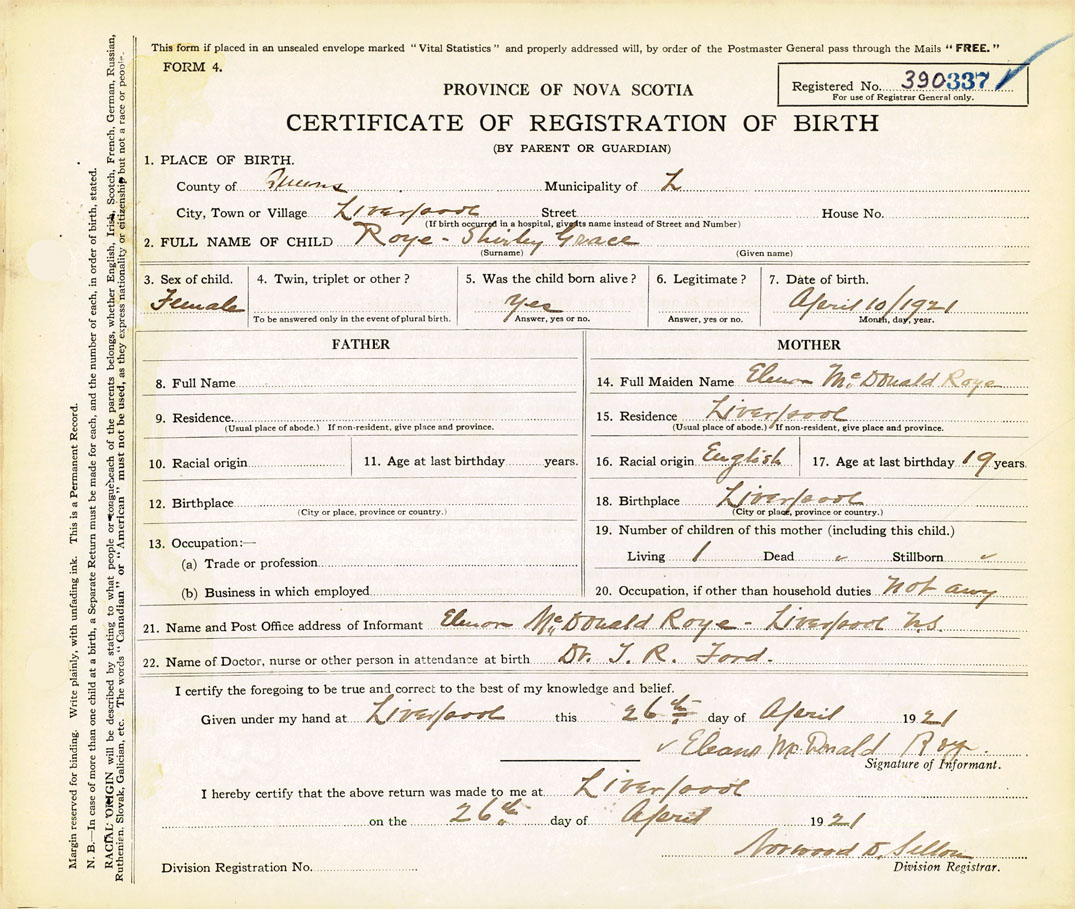 This form if placed in an unsealed envelope marked "Vital Statistics" and properly addressed will, by order of the Postmaster General pass through the Mails "FREE."
FORM 4.
Registered No. 390337
For use of Registrar General only.
PROVINCE OF NOVA SCOTIA
CERTIFICATE OF REGISTRATION OF BIRTH
(BY PARENT OR GUARDIAN)
1. PLACE OF BIRTH.
County of Queens Municipality of L
City, Town or Village Liverpool Street House No.
(If birth occurred in a hospital, give its name instead of Street and Number)
2. FULL NAME OF CHILD Roye - Shirley Grace
(Surname) (Given name)
3. Sex of child. 4. Twin, triplet or other? 5. Was the child born alive? 6. Legitimate? 7. Date of birth.
Female Yes April 10/1921
To be answered only in the event of plural birth. Answer, yes or no. Answer, yes or no. Month, day, year.
FATHER
8. Full Name
9. Residence.
(Usual place of abode.) If non-resident, give place and province.
10. Racial origin 11. Age at last birthday years.
12. Birthplace
(City or place, province or country.)
13. Occupation:—
(a) Trade or profession
(b) Business in which employed
MOTHER
14. Full Maiden Name Elenor McDonald Roye
15. Residence Liverpool
(Usual place of abode.) If non-resident, give place and province.
16. Racial origin English 17. Age at last birthday 19 years.
18. Birthplace Liverpool
(City or place, province or country.)
19. Number of children of this mother (including this child.)
Living 1 Dead Stillborn
20. Occupation, if other than household duties not any
21. Name and Post Office address of Informant Elenor McDonald Roye - Liverpool N.S.
22. Name of Doctor, nurse or other person in attendance at birth Dr. J. R. Ford.
I certify the foregoing to be true and correct to the best of my knowledge and belief.
Given under my hand at Liverpool this 26th day of April 1921
McDonald Roy
Signature of Informant.
I hereby certify that the above return was made to me at Liverpool
on the 26th day of April 1921
Norwood
Division Registration No. Division Registrar.
Margin reserved for binding. Write plainly, with unfading ink. This is a Permanent Record.
N. B.—In case of more than one child at a birth, a Separate Return must be made for each, and the number of each, in order of birth, stated.
RACIAL ORIGIN will be described by stating to what people or tongue each of the parents belongs, whether English, Irish, Scotch, French, German, Russian,
Ruthenian, Slovak, Galician, etc. The words "Canadian" or "American" must not be used, as they express nationality or citizenship but not a race or people.